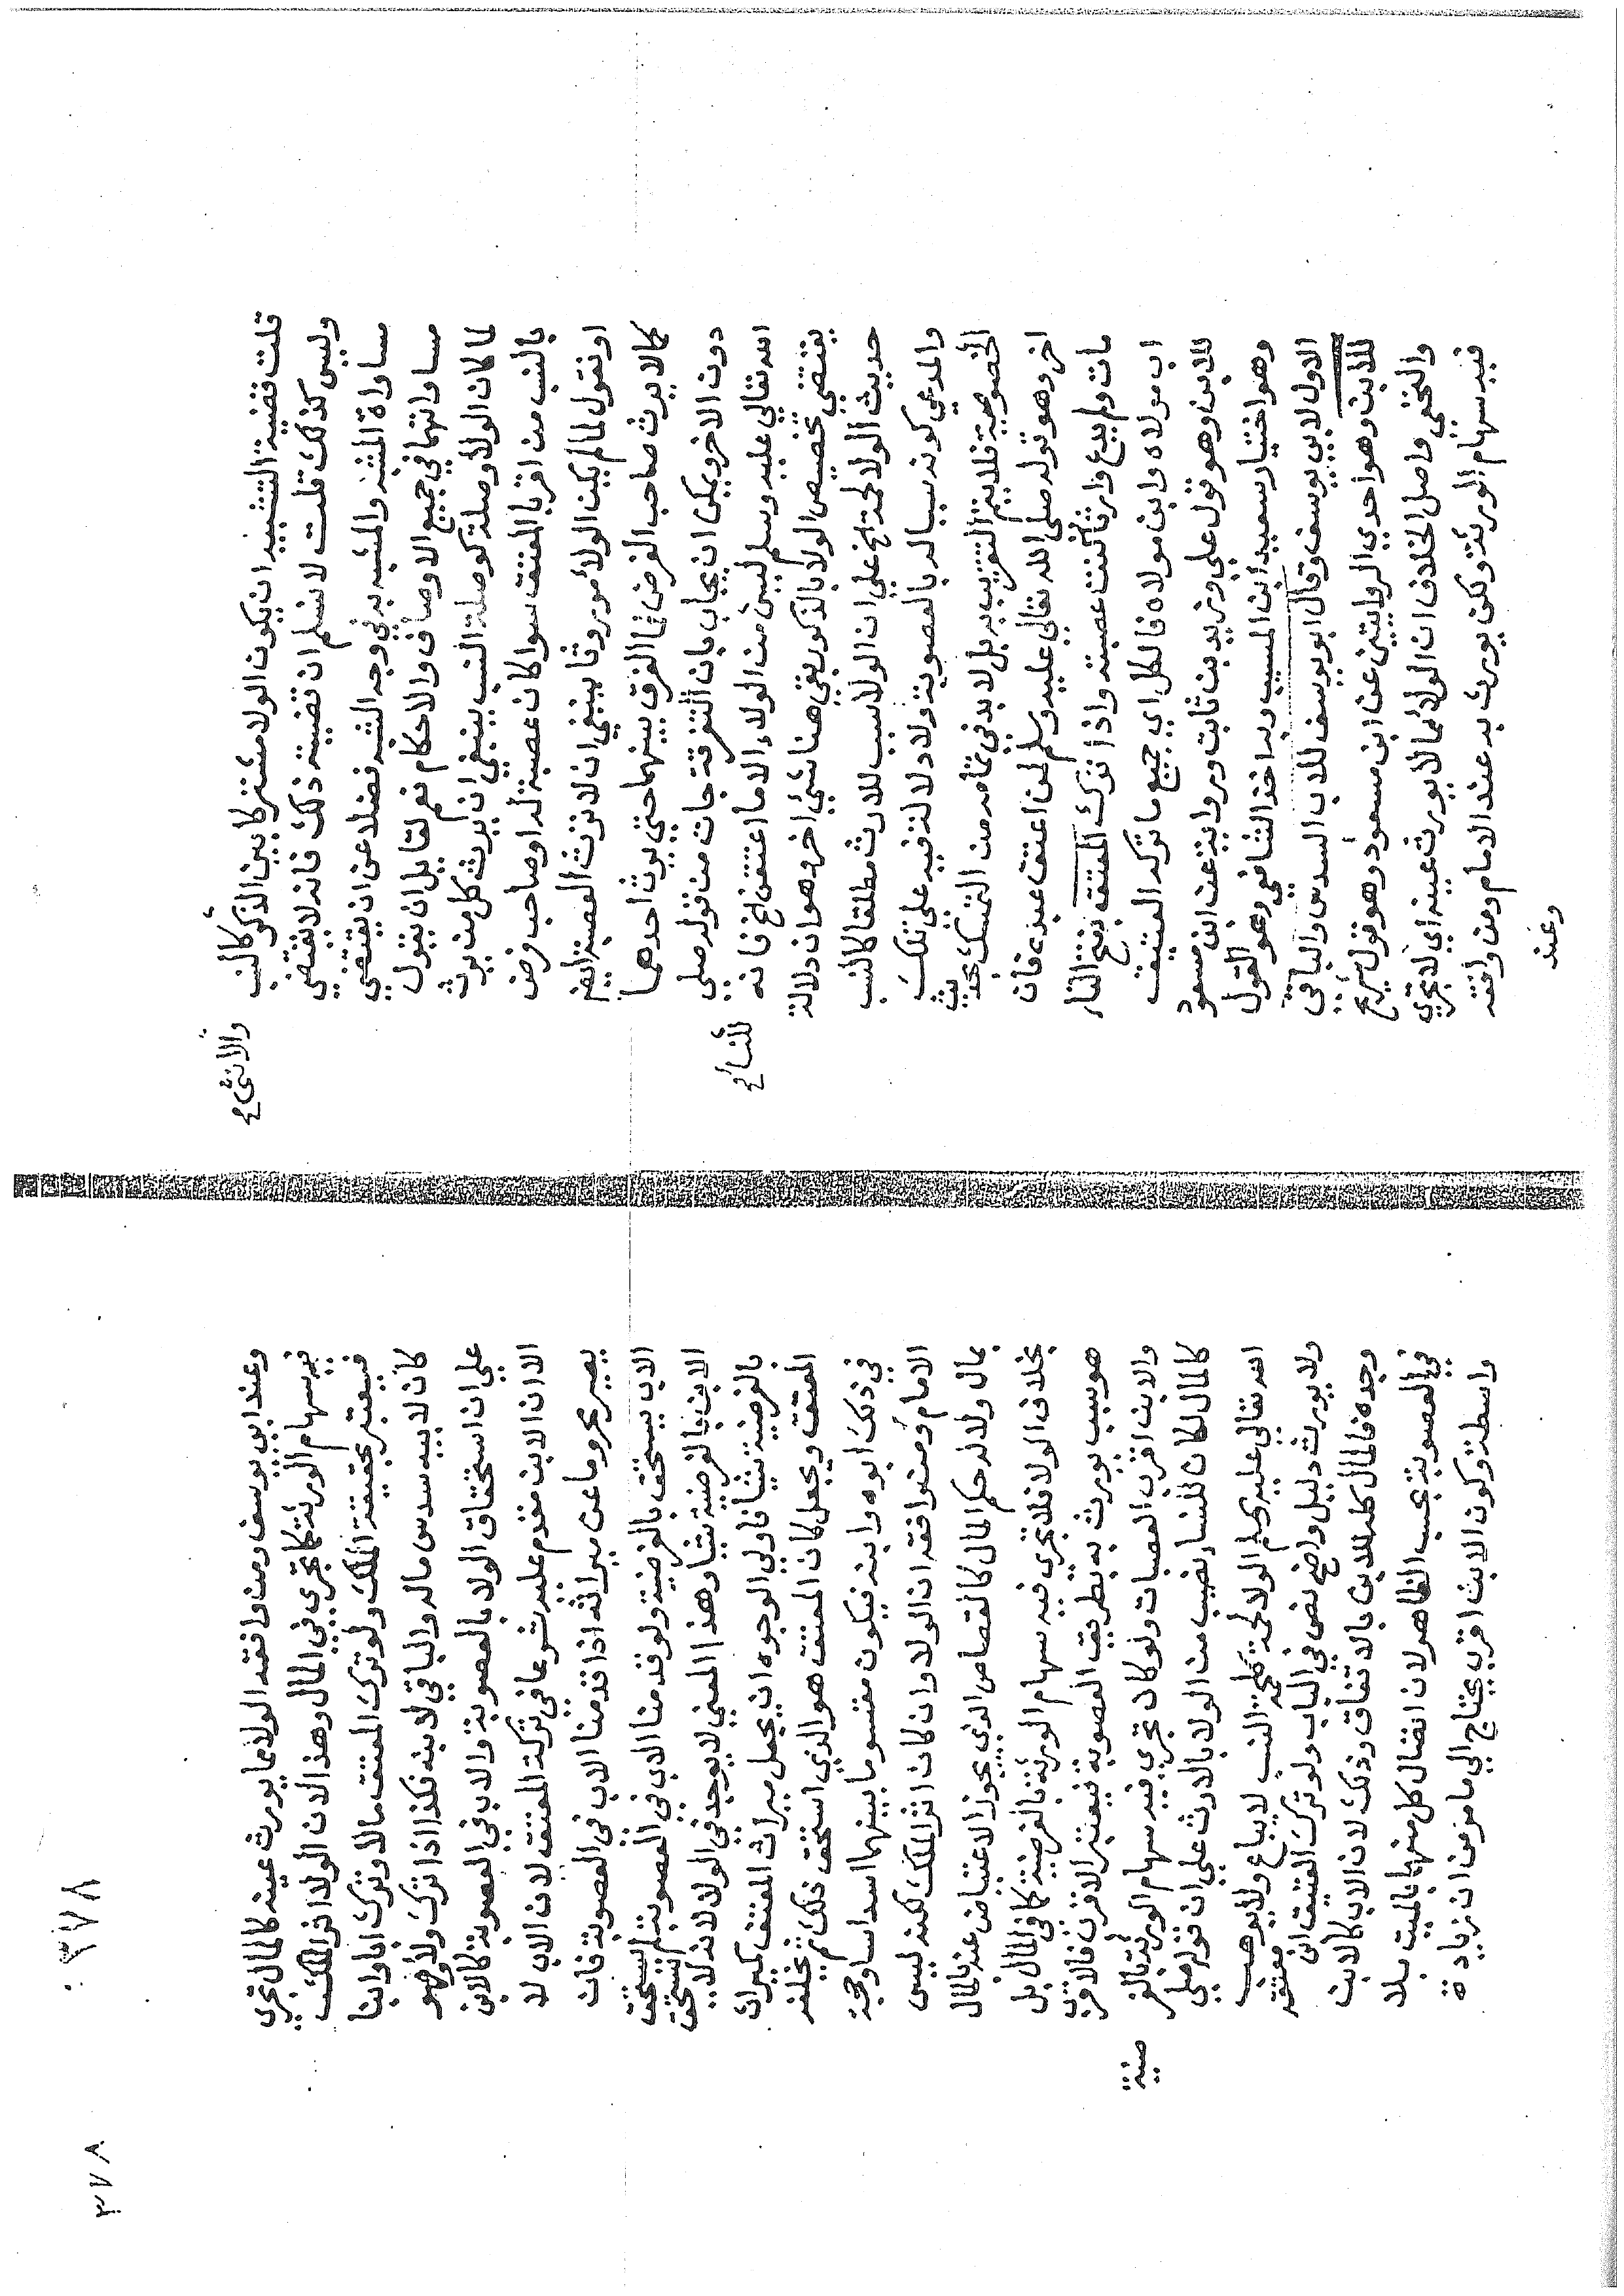 قلت قضية التشبيه ان يكون الولا مشتركا بين الذكر كالنسب
والانثى صح
وليس كذلك قلت لا نسلم ان قضيته ذلك فانه لا تقتضي
مساواة المشبه والمشبه به في وجه الشبه فضلا عن ان يقتضي
مساواتهما في جميع الاوصاف والاحكام نعم لقايل ان يقول
لما كان الولا وصلة كوصلة النسب ينبغي ان يرث كل من يرث
بالنسب من اقربا المعتق سوا كان عصبة له او صاحب فرض
او نقول لما لم يكن الولا موروثا ينبغي ان لا ترث العصبة ايضا
كما لا يرث صاحب الفرض فما الفرق بينهما حتي يرث احدهما
دون الاخر ويمكن ان يجاب بان التفرقة جات من قوله صلي
الله تعالي عليه وسلم ليس من الولاء الا ما اعتقن الخ فانه
للنساء صح
يقتضي تخصيص الولا بالذكور بقي هنا شئ اخر وهو ان دلالة
حديث الولا لحمة الخ علي ان الولا سبب للارث مطلقا كالنسب
والمدعي كونه سببا له بالعصوبة ولا دلالة فيه علي تلك
الخصوصية فلا يتم التقريب به بل لا بد في تمامه من التمسك بحديث
اخر وهو قوله صلي الله تعالي عليه وسلم لمن اعتق عبده فان
مات ولم يدع وارثا كنت عصبته واذا ترك المعتق بفتح التاء
اب مولاه وابن مولاه فالكل اي جميع ما تركه العتيق
للابن وهو قول علي وزيد بن ثابت ورواية عن ابن مسعود
وهو اختيار سعيد ابن المسيب وبه اخذ الشافعي وهو القول
الاول لابي يوسف وقال ابو يوسف للاب السدس والباقي
للابن وهو احدي الروايتين عن ابن مسعود وهو قول شريح
والنخعي واصل الخلاف ان الولا لما لا يورث عينه اي لا تجري
فيه سهام الورثة ولكن يورث به عند الامام ومن وافقه
وعند
٣٧٨
٣٧٨
وعند ابي يوسف ومن وافقه الولا مما يورث عينه كالمال تجري
فيه سهام الورثة كما تجري في المال وهذا لان الولا اثر الملك
فيعتبر بحقيقة الملك ولو ترك المعتق مالا وترك ابا وابنا
كان لابيه سدس ماله والباقي لابنه فكذا اذا ترك ولا وهو
علي ان استحقاق الولا بالعصوبة والاب في العصوبة كالابن
الا ان الابن مقدم عليه شرعا في تركة المعتق لان الاب لا
يصير محروما عن ميراثه اذا قدمنا الاب في العصوبة فان
الاب يستحق بالفرضية ولو قدمنا الاب في العصوبة لم يستحق
الابن بالفرضية شيا وهذا المعني لا يوجد في الولا لانه لا يستحق
بالفرضية شيا فاولي الوجوه ان يجعل ميراث المعتق كميراث
المعتق ويجعل كان المعتق هو الذي استحق ذلك ثم يخلفه
في ذلك ابوه وابنه فيكون مقسوما بينهما اسداسا وحجة
الامام ومن وافقه ان الولا وان كان اثر الملك لكنه ليس
بمال ولا له حكم المال كالقصاص الذي يجوز الاعتياض عنه بالمال
بخلاف الولا فلا تجري فيه سهام الورثة بالفرضية كما في المال بل
هو سبب يورث به بطريق العصوبة فيعتبر الاقرب فالاقرب
والابن اقرب العصبات ولو كان تجري فيه سهام الورثة بالفر
ضية
كالمال لكان للنساء نصيب من الولا بالارث علي ان قوله صلي
الله تعالي عليه وسلم الولا لحمة كلحمة النسب لا يباع ولا يوهب
ولا يورث دليل واضح نص في الباب ولو ترك العتيق ابن معتقه
وجده فالمال كله للابن بالاتفاق وذلك لان الاب كالابن
في العصوبة بحسب الظاهر لان اتصال كل منهما بالميت بلا
واسطة وكون الابن اقرب يحتاج الي ما مر من ان زيادة